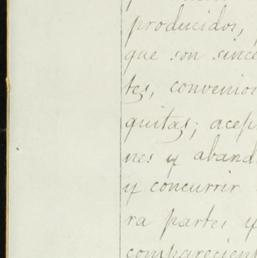 producidos,
que son since
tes, convenio
quitas; acep
nes y aband
y concurrir
ra partes y
comparecient